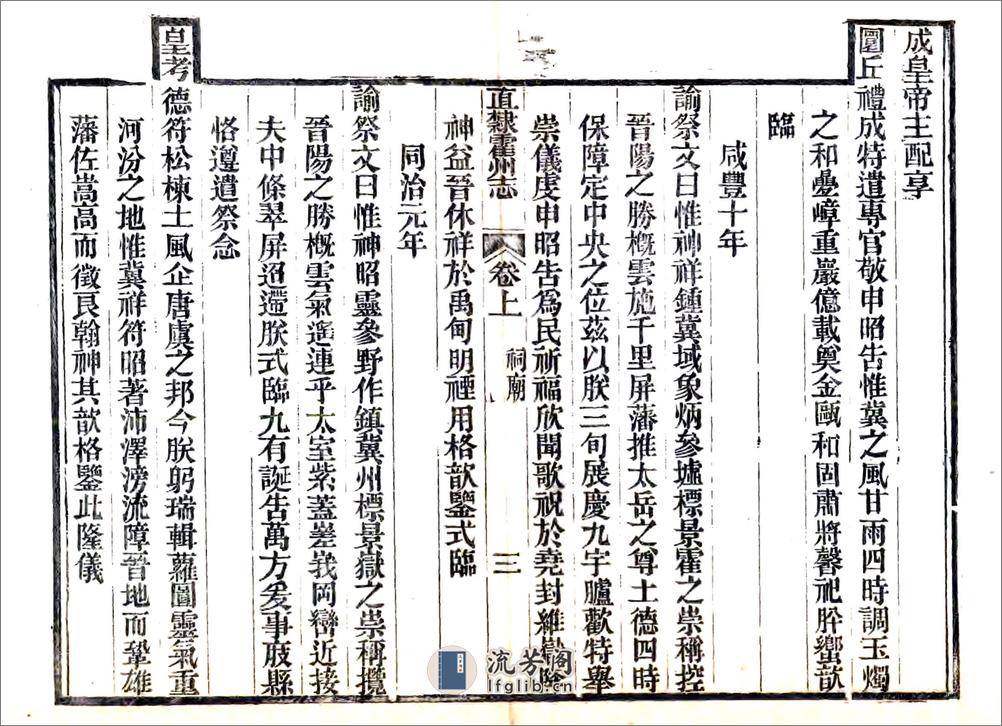 成皇帝主配享
圜丘禮成特遣專官敬申昭告惟冀之風甘雨四時調玉燭
之和疊嶂重巖億載奠金甌和固肅將馨祀肸蠁歆
臨
咸豐十年
諭祭文曰惟神祥鍾冀域象炳參墟標景霍之崇稱控
晉陽之勝概雲施千里屏藩推太岳之尊土德四時
保障定中央之位茲以朕三旬展慶九宇臚歡特舉
崇儀虔申昭告為民祈福欣聞歌祝於堯封維嶽降
神益晉休祥於禹甸明禋用格歆鑒式臨
同治元年
諭祭文曰惟神昭靈參野作鎮冀州標景嶽之崇稱攬
晉陽之勝概雲氣遙連乎太室紫蓋嵳峩岡巒近接
夫中條翠屏迢遞朕式臨九有誕告萬方爰事庪縣
恪遵遣祭念
皇考德符松棟土風企唐虞之邦今朕躬瑞輯蘿圖靈氣重
河汾之地惟冀祥符昭著沛澤滂流障晉地而鞏雄
藩佐嵩高而徵良翰神其歆格鑒此隆儀
直隸霍州志
卷上
祠廟
三
流芳閣
lfglib.cn